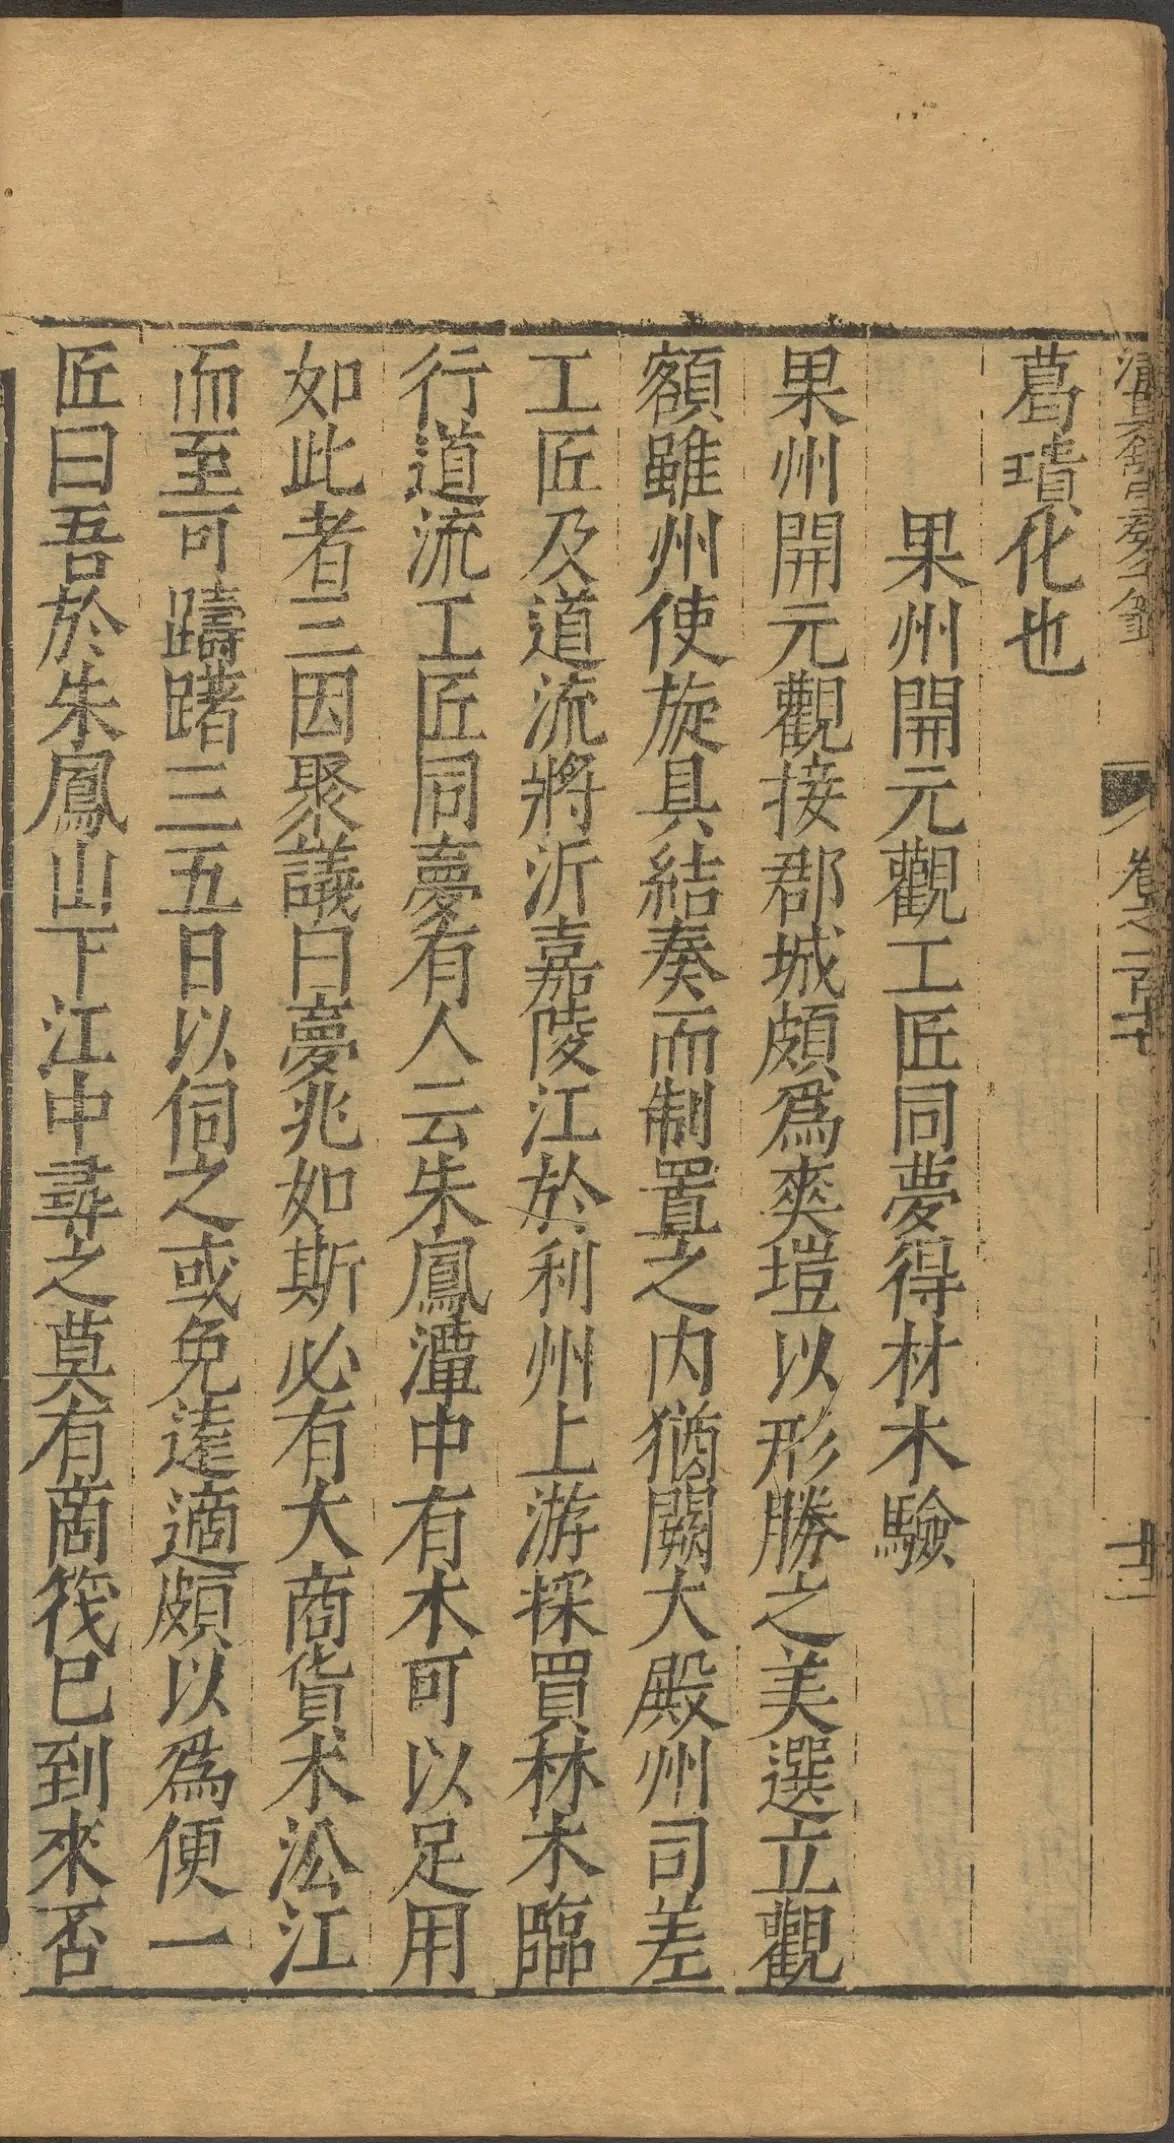 葛璝化也
果州開元觀工匠同夢得材木驗
果州開元觀接郡城頗爲爽塏以形勝之美選立觀
額雖州使旋具結奏而制置之內猶闕大殿州司差
工匠及道流將泝嘉陵江於利州上游採買林木臨
行道流工匠同夢有人云朱鳳潭中有木可以足用
如此者三因聚議曰夢兆如斯必有大商貨木㳂江
而至可躊躇三五日以伺之或免遠適頗以爲便一
匠曰吾於朱鳳山下江中尋之莫有商筏已到來否